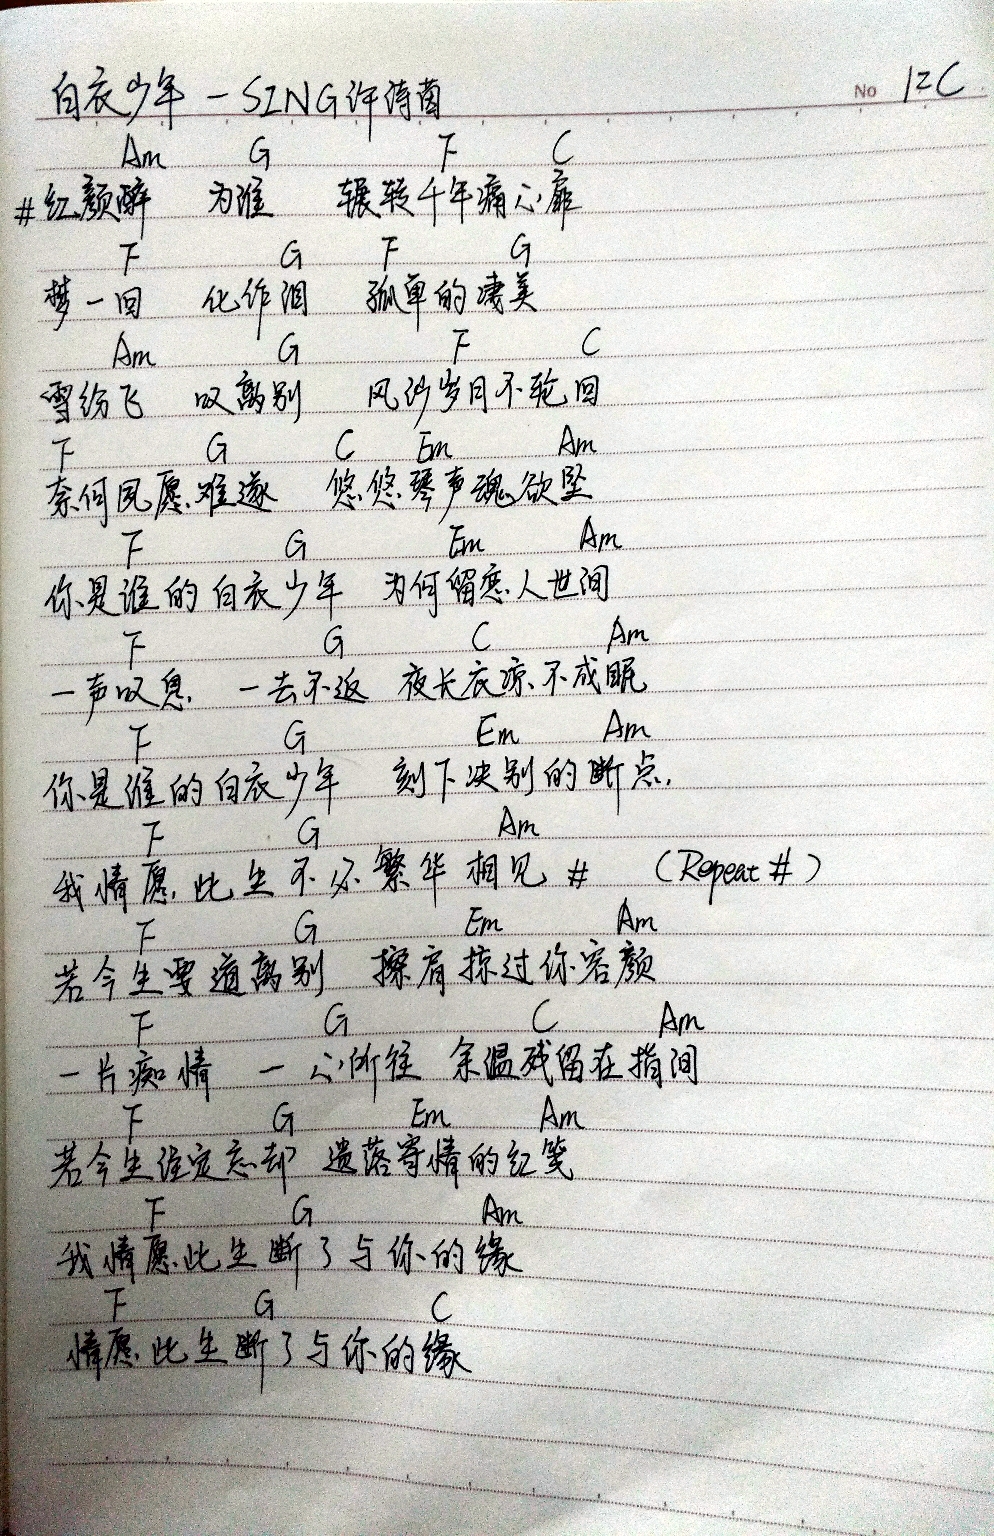 白衣少年 — SING许诗茵 No 1=C
Am G F C
#红颜醉 为谁 辗转千年痛心扉
F G F G
梦一回 化作泪 孤单的凄美
Am G F C
雪纷飞 叹离别 风沙岁月不轮回
F G C Em Am
奈何夙愿难遂 悠悠琴声魂欲坠
F G Em Am
你是谁的白衣少年 为何留恋人世间
F G C Am
一声叹息 一去不返 夜长衣凉不成眠
F G Em Am
你是谁的白衣少年 刻下决别的断点
F G Am
我情愿此生不必繁华相见 # (Repeat #)
F G Em Am
若今生要道离别 擦肩掠过你容颜
F G C Am
一片痴情 一心所往 余温残留在指间
F G Em Am
若今生注定忘却 遗落寄情的红笺
F G Am
我情愿此生断了与你的缘
F G C
情愿此生断了与你的缘